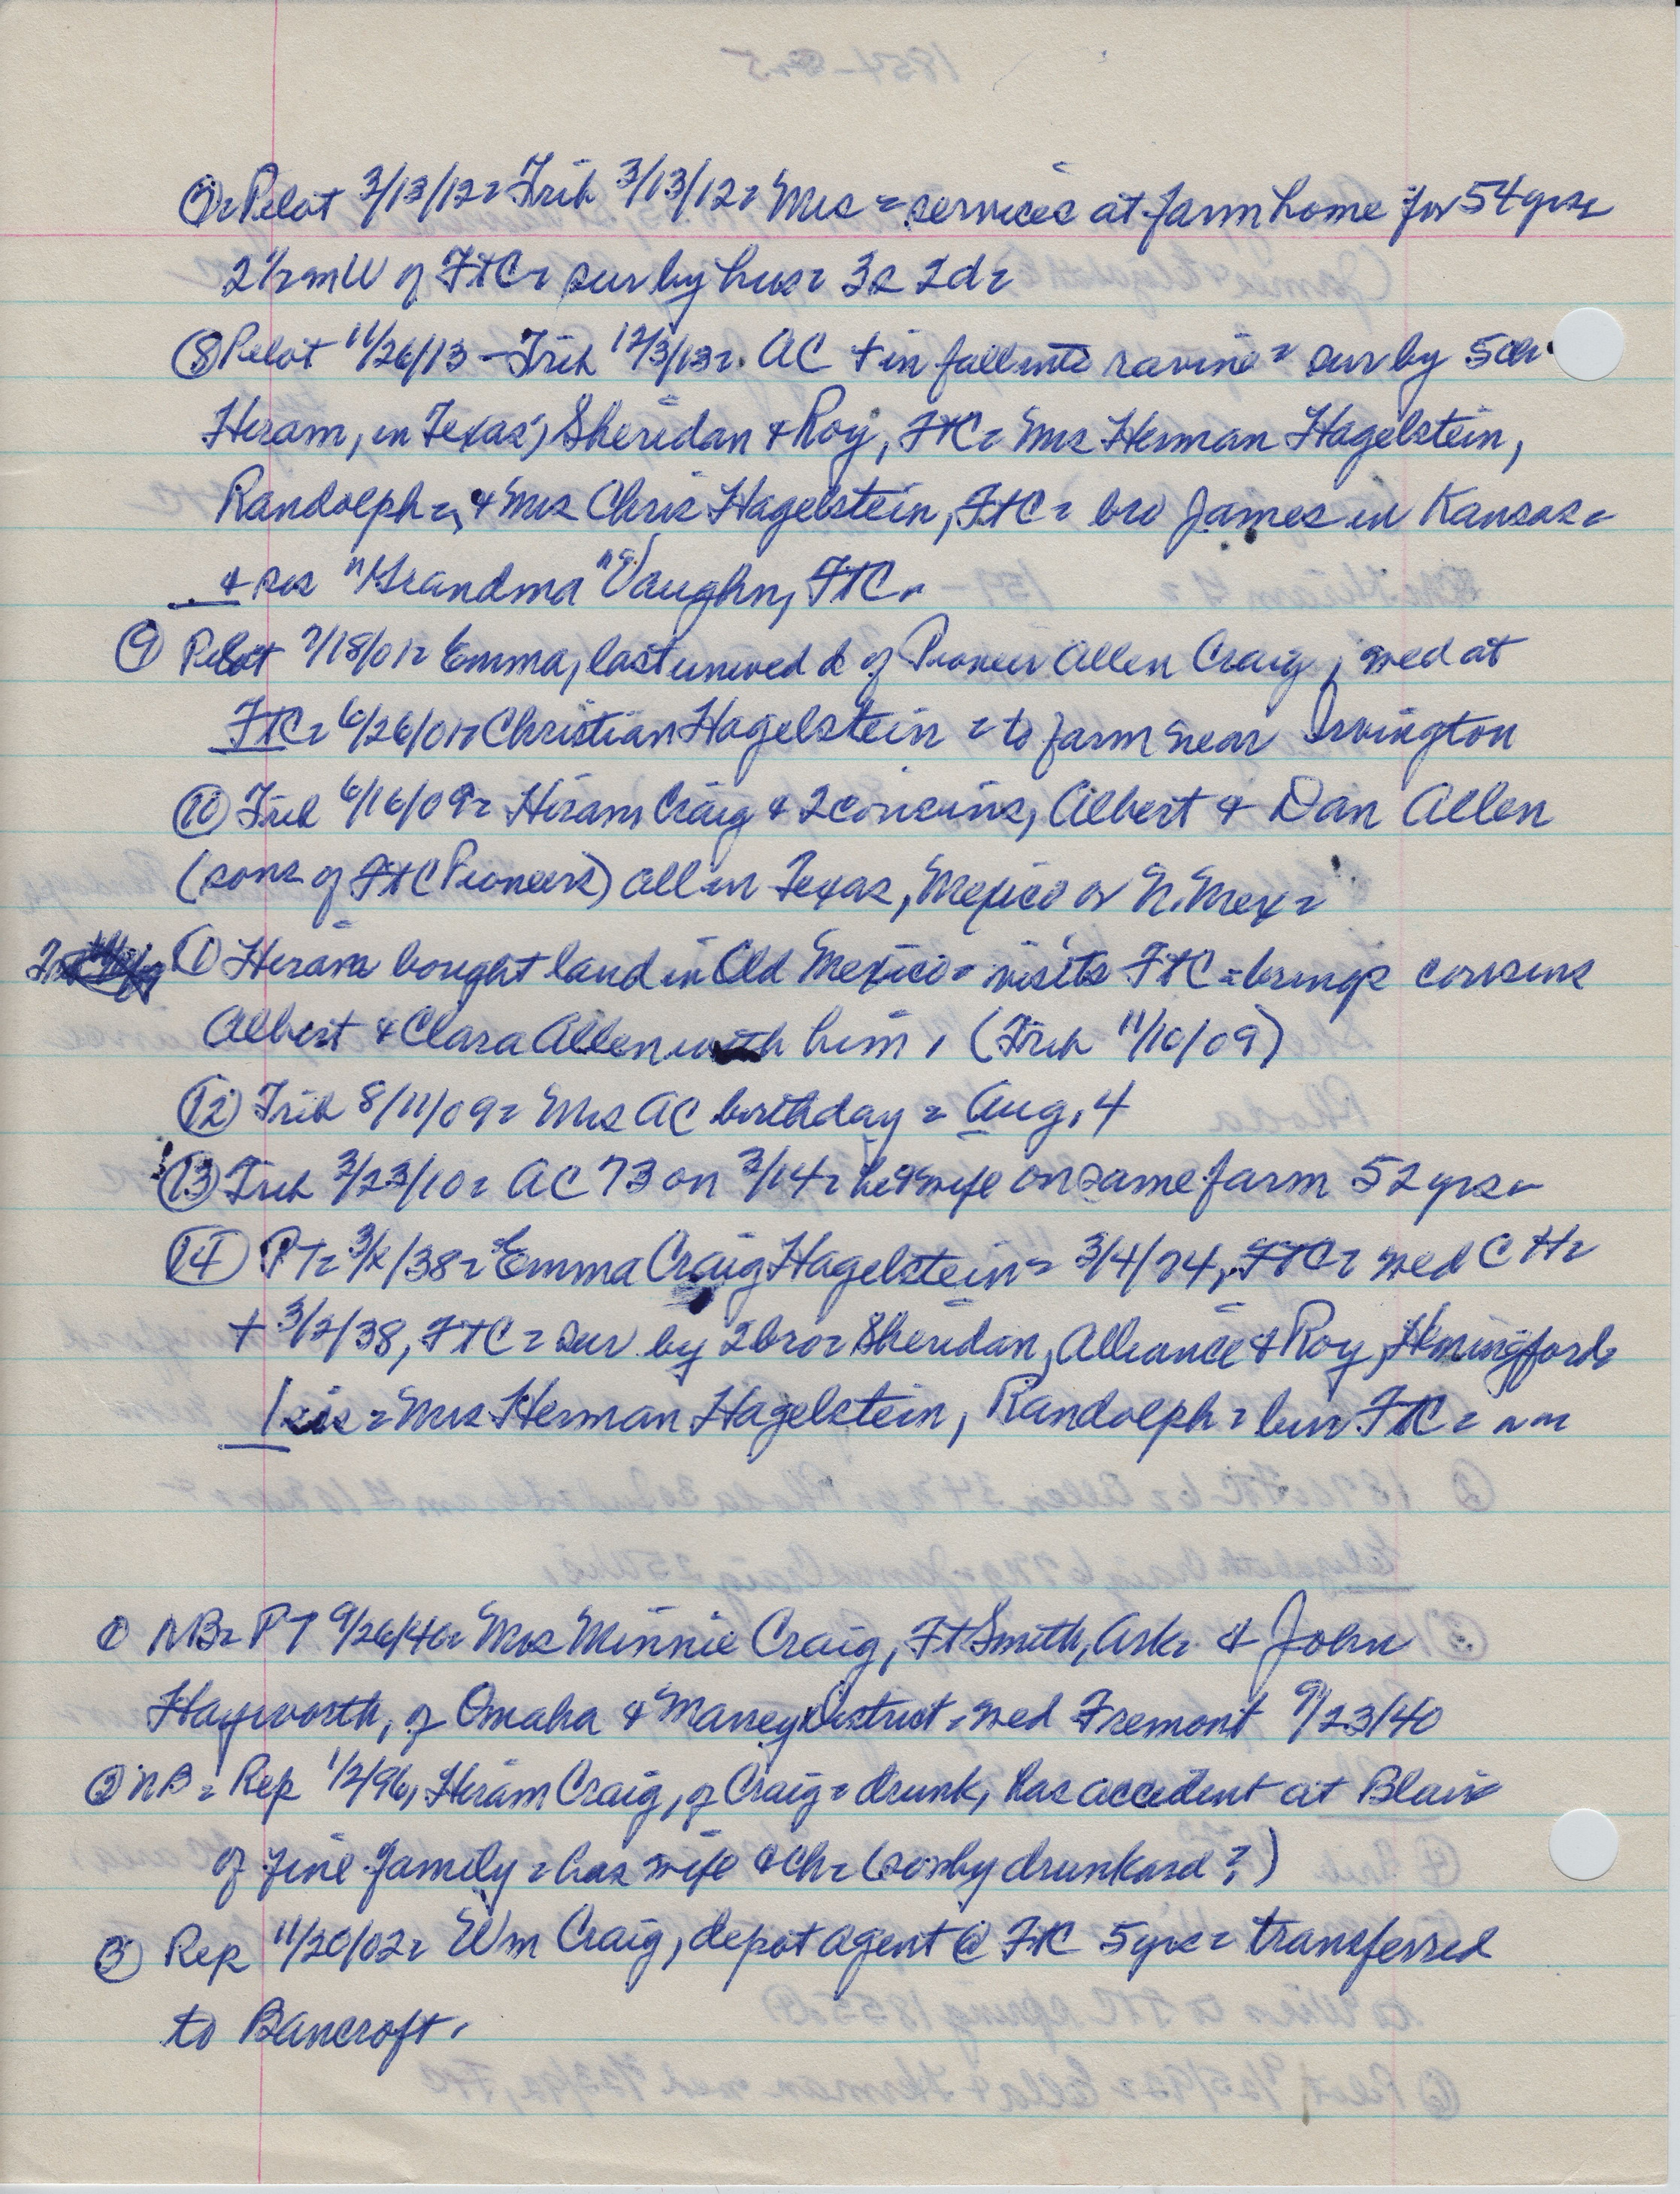 ⑦ = Pilot 3/13/12 = Trib 3/13/12 = Mrs = services at farm home for 54 yrs =
2 1/2 m W of FtC = sur by hus = 3s 2d =
⑧ Pilot 11/26/13 - Trib 12/3/13 = AC + in fall into ravine = sur by 5 ch
Hiram, in Texas, Sheridan & Roy, FtC = Mrs Herman Hagelstein,
Randolph =, & Mrs Chris Hagelstein, FtC = bro James in Kansas =
& sis "Grandma" Vaughn, FtC =
⑨ Pilot 7/18/01 = Emma, last unwed d of Pioneer Allen Craig, wed at
FtC = 6/26/01 = Christian Hagelstein = to farm near Irvington
⑩ Trib 6/16/09 = Hiram Craig & 2 cousins, Albert & Dan Allen
(sons of FtC Pioneers) all in Texas, Mexico or N. Mex =
⑪ Hiram bought land in Old Mexico = visits FtC = brings cousins
Albert & Clara Allen with him, (Trib 11/10/09)
⑫ Trib 8/11/09 = Mrs AC birthday = Aug. 4
⑬ Trib 3/23/10 = AC 73 on 3/14 = he & wife on same farm 52 yrs =
⑭ PT = /38 = Emma Craig Hagelstein = 3/4/74, FtC = wed CH =
+ 3/2/38, FtC = sur by 2 bro = Sheridan, Alliance & Roy, Hemingford =
1 sis = Mrs Herman Hagelstein, Randolph = bur FtC =
① NB = PT 9/26/40 = Mrs Minnie Craig, Ft Smith, Ark = & John
Hayworth, of Omaha & Maney District = wed Fremont 9/23/40
② NB = Rep 1/2/96, Hiram Craig, of Craig = drunk, has accident at Blair
of fine family = has wife & ch = (so why drunkard?)
③ Rep 11/20/02 = Wm Craig, depot agent @ FtC 5 yrs = transferred
to Bancroft.